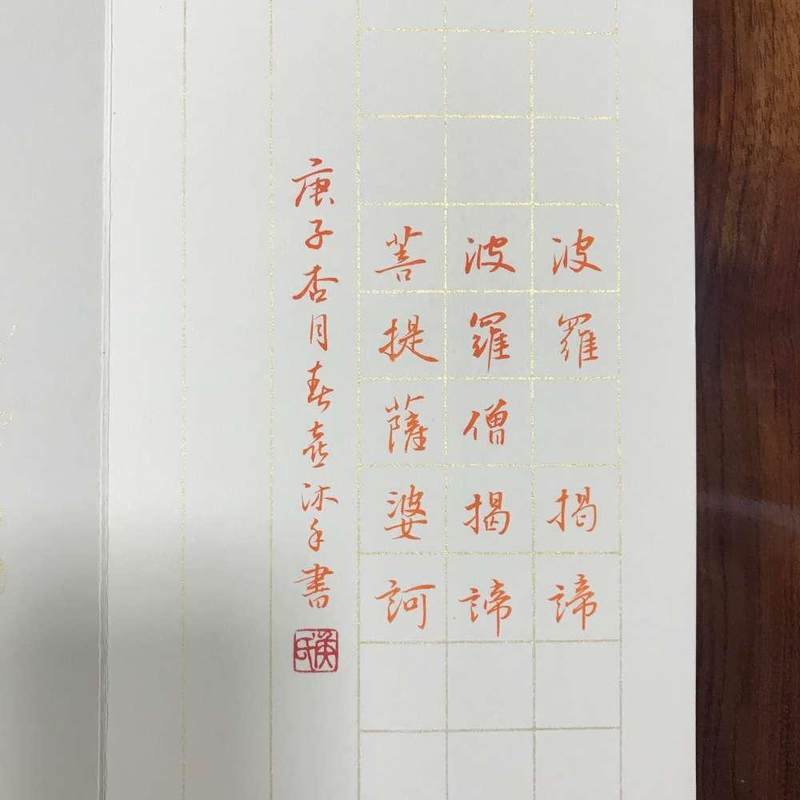 波羅揭諦
波羅僧揭諦
菩提薩婆訶
庚子杏月春喜沐手書